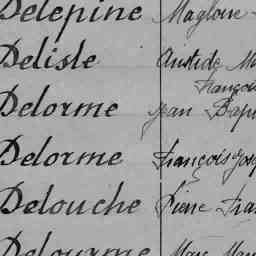 Delepine Magloire
Delisle Aristide
François
Delorme Jean Bap
Delorme François Jos
Delouche Pierre Fra
Delourme Marc